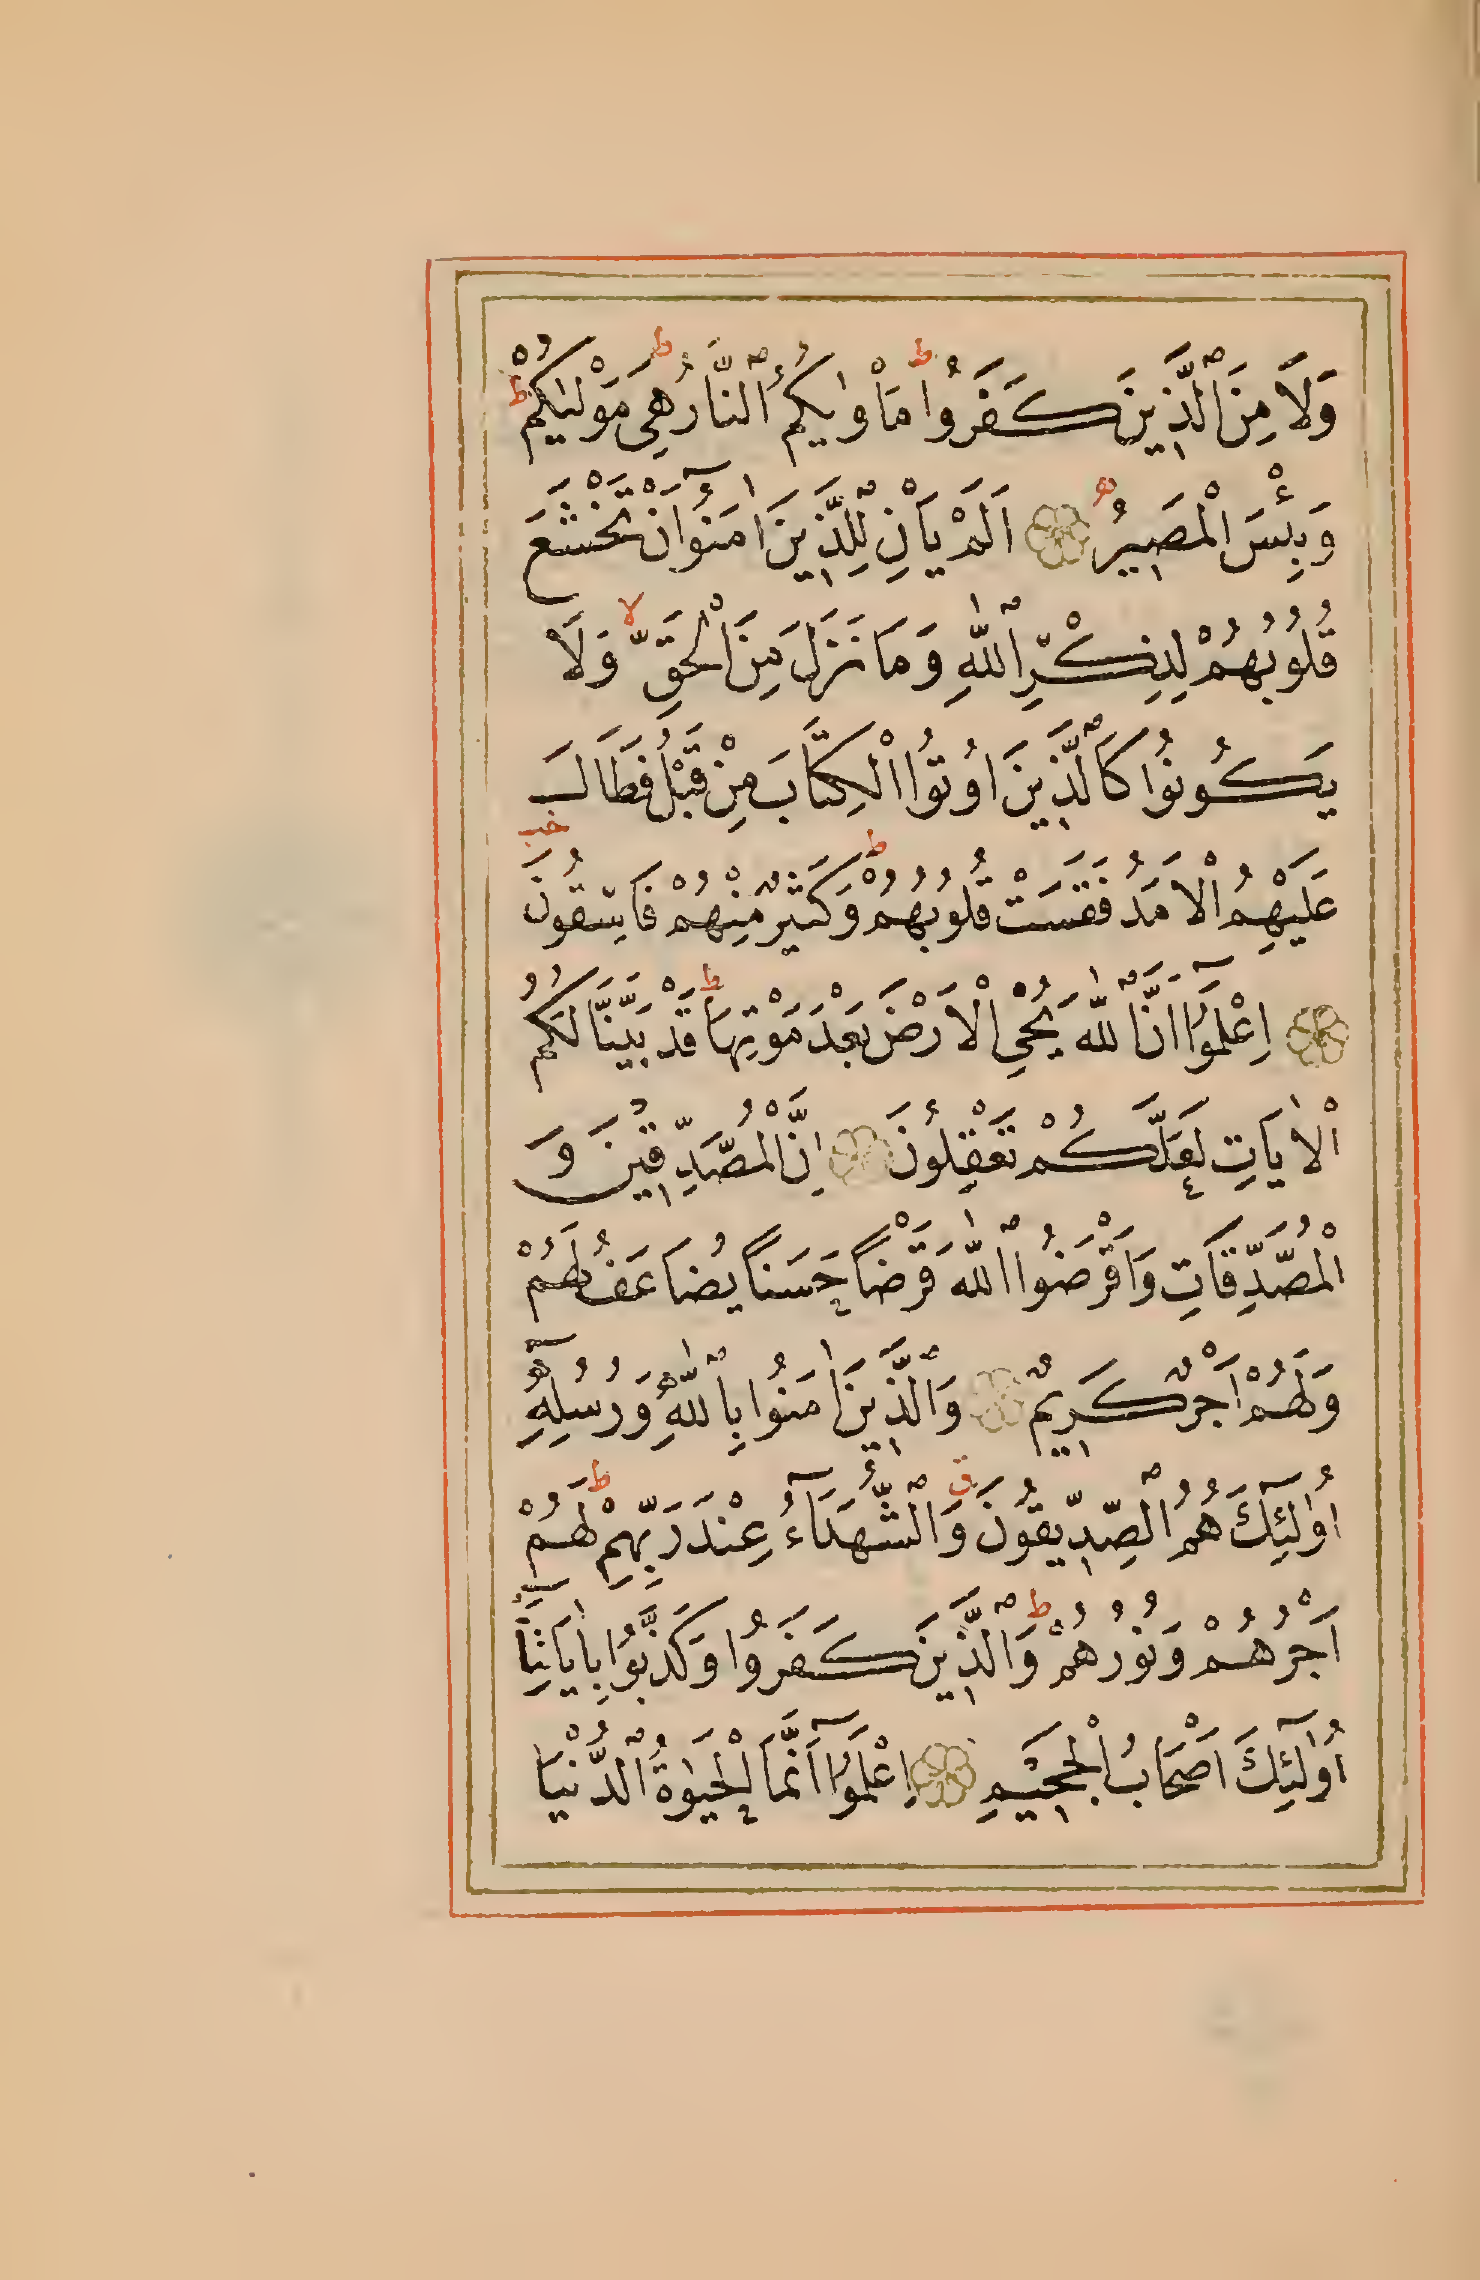 وَلَا مِنَ الَّذِينَ كَفَرُوا ط مَأْوٰيكُمُ النَّارُ ط هِىَ مَوْلٰيكُمْ ط
وَبِئْسَ الْمَصِيرُ اَلَمْ يَأْنِ لِلَّذِينَ اٰمَنُوٓا اَنْ تَخْشَعَ
قُلُوبُهُمْ لِذِكْرِ اللّٰهِ وَمَا نَزَلَ مِنَ الْحَقِّ لا وَلَا
يَكُونُوا كَالَّذِينَ اُوتُوا الْكِتَابَ مِنْ قَبْلُ فَطَالَ
عَلَيْهِمُ الْاَمَدُ فَقَسَتْ قُلُوبُهُمْ ط وَكَثِيرٌ مِنْهُمْ فَاسِقُونَ
اِعْلَمُوٓا اَنَّ اللّٰهَ يُحْيِ الْاَرْضَ بَعْدَ مَوْتِهَا ط قَدْ بَيَّنَّا لَكُمُ
الْاٰيَاتِ لَعَلَّكُمْ تَعْقِلُونَ اِنَّ الْمُصَّدِّقِينَ وَ
الْمُصَّدِّقَاتِ وَاَقْرَضُوا اللّٰهَ قَرْضًا حَسَنًا يُضَاعَفُ لَهُمْ
وَلَهُمْ اَجْرٌ كَرِيمٌ وَالَّذِينَ اٰمَنُوا بِاللّٰهِ وَرُسُلِهِٓ
اُولٰٓئِكَ هُمُ الصِّدِّيقُونَ ق وَالشُّهَدَآءُ عِنْدَ رَبِّهِمْ ط لَهُمْ
اَجْرُهُمْ وَنُورُهُمْ ط وَالَّذِينَ كَفَرُوا وَكَذَّبُوا بِاٰيَاتِنَآ
اُولٰٓئِكَ اَصْحَابُ الْجَحِيمِ اِعْلَمُوٓا اَنَّمَا الْحَيٰوةُ الدُّنْيَا